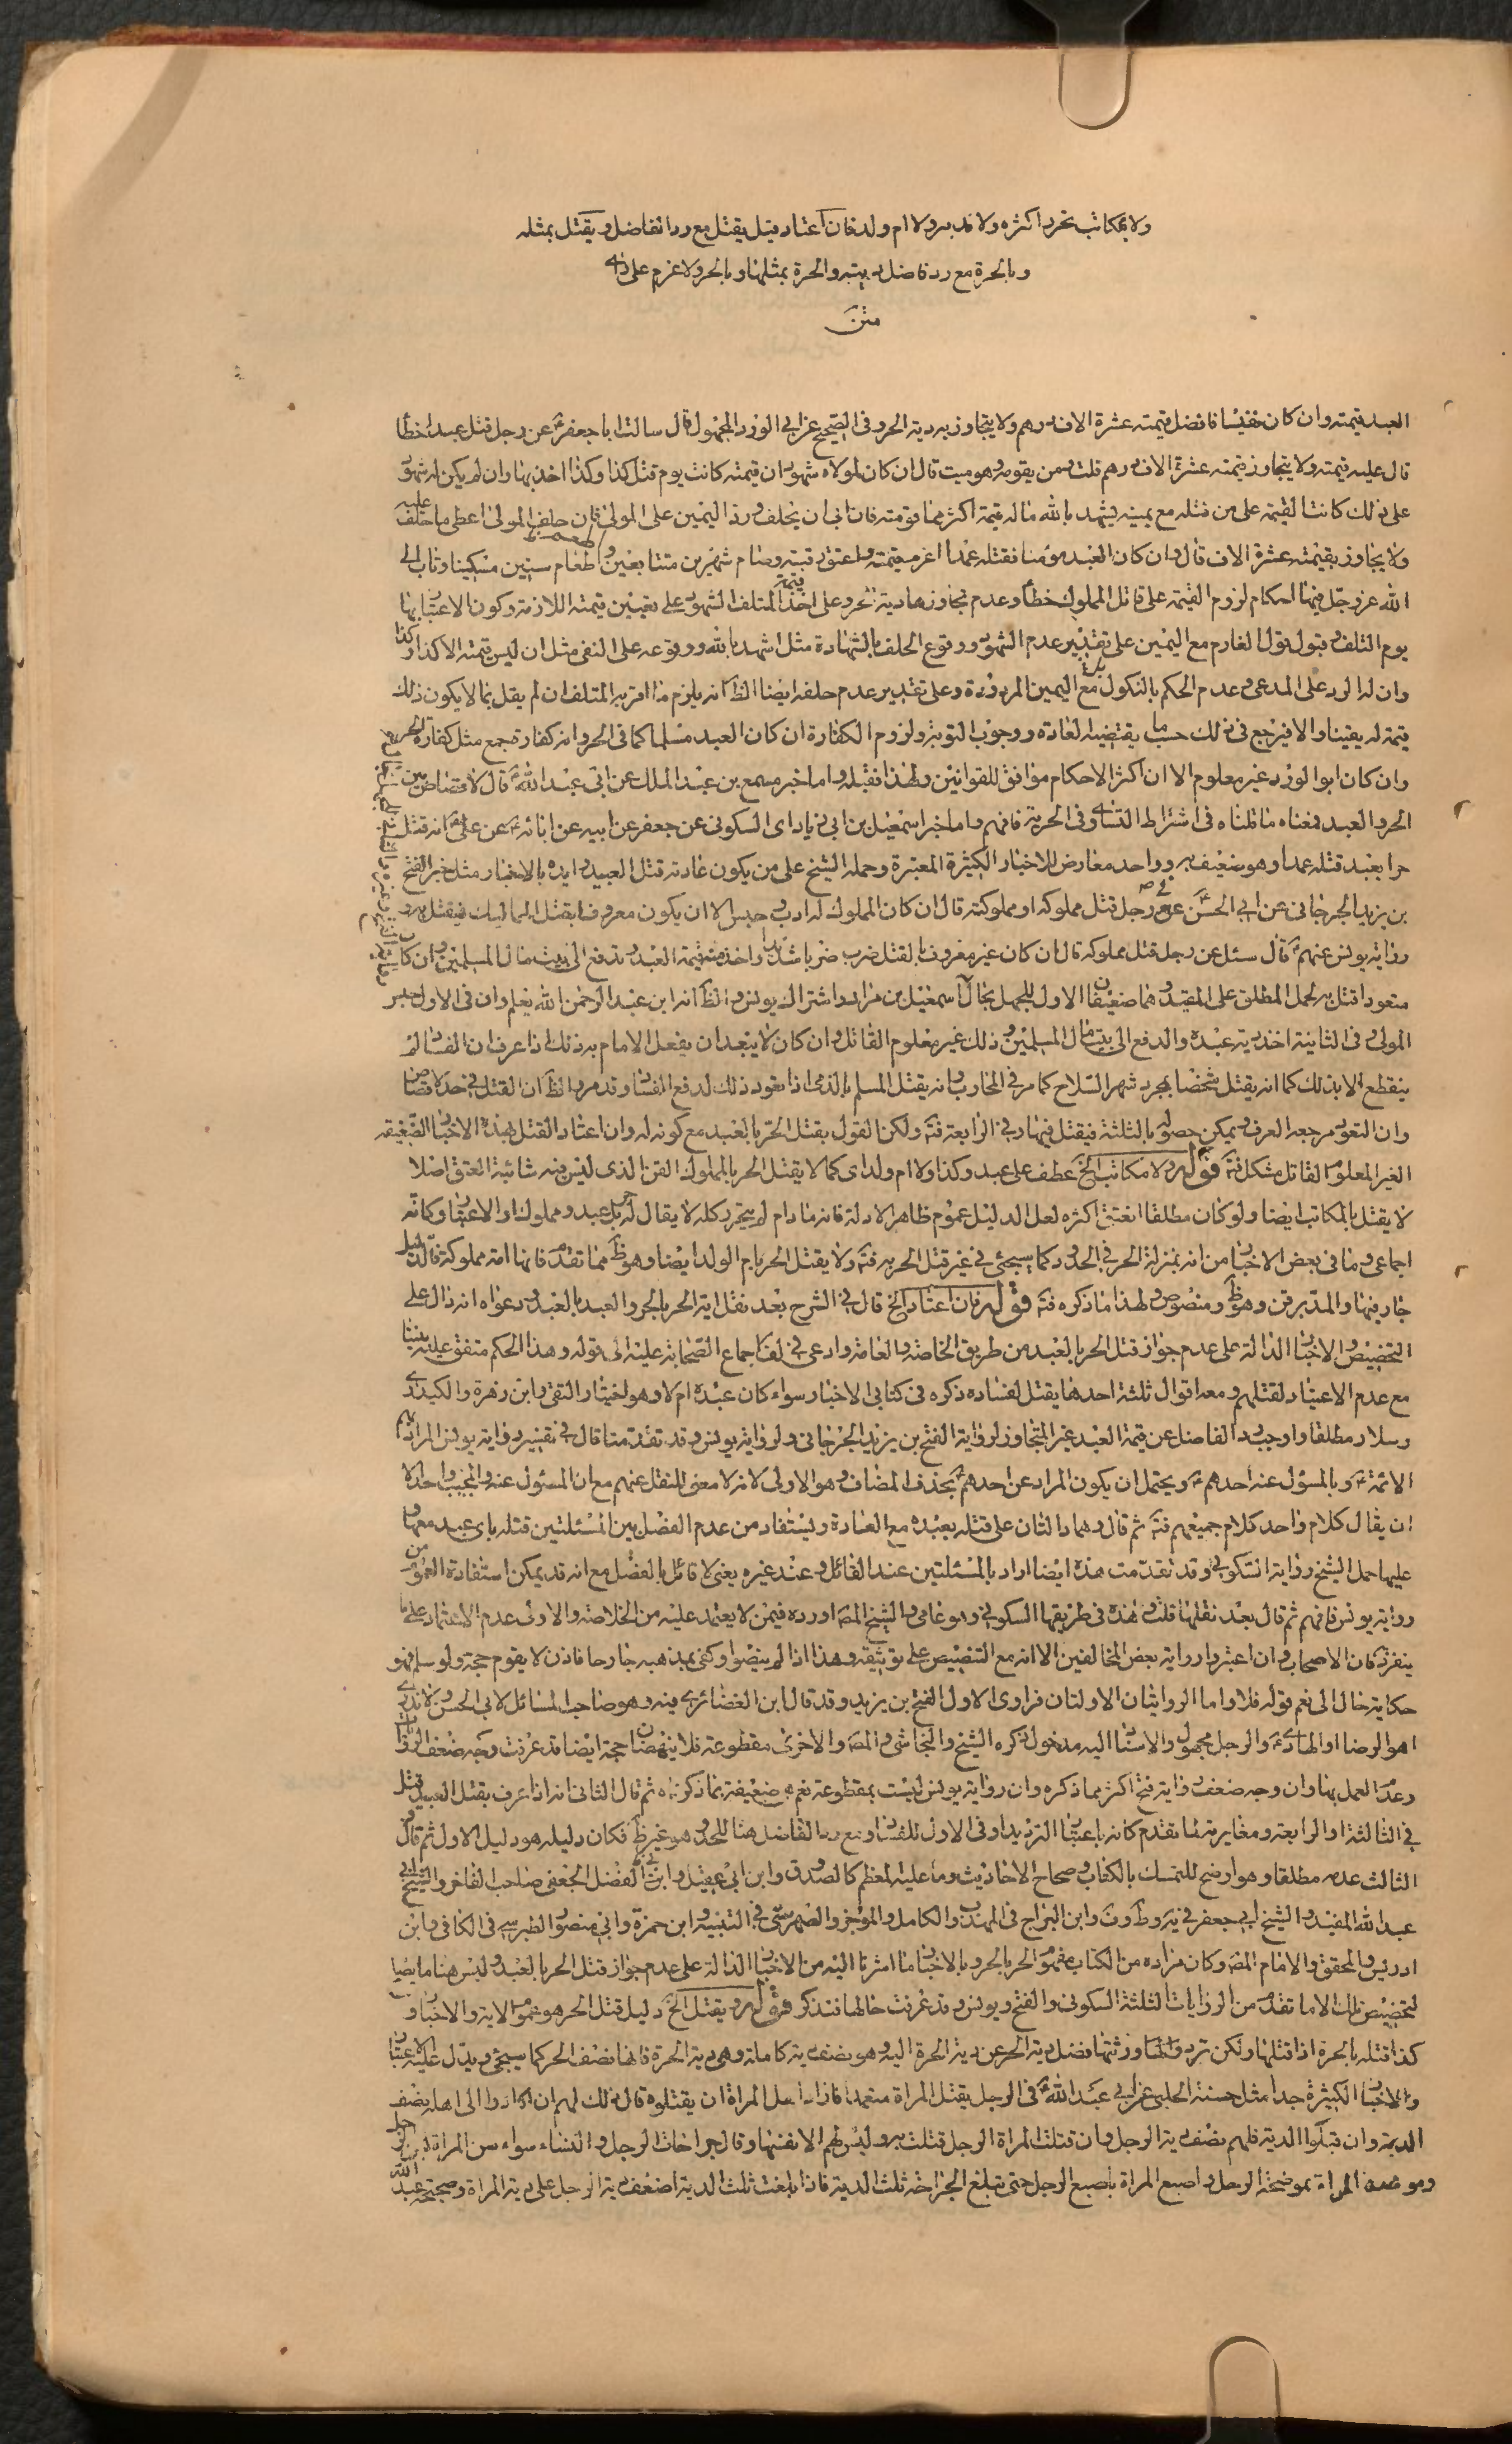 ولا بمكاتب تحرر اكثره ولا مدبر ولا ام ولد فان اعتاد قيل يقتل مع رد الفاضل ويقتل بمثله
وبالحرة مع رد فاضل ديته والحرة بمثلها وبالحر ولا غرم على
متن
العبد قيمته وان كان نفيسا فافضل قيمته عشرة الاف درهم ولا يتجاوز به دية الحر وفى الصحيح عن ابي الورد المجهول قال سالت ابا جعفر عن رجل قتل عبدا خطأ
قال عليه قيمته ولا يتجاوز قيمته عشرة الاف درهم قلت ومن يقومه وهو ميت قال ان كان لمولاه شهود ان قيمته كانت يوم قتل كذا وكذا اخذ بها وان لم يكن له شهود
على ذلك كانت القيمة على من قتله مع يمينه يشهد بالله ماله قيمة اكثر مما قومته فان ابى ان يحلف ورد اليمين على المولى فان حلف المولى اعطى ما حلف عليه
ولا يجاوز بقيمته عشرة الاف قال وان كان العبد مؤمنا فقتله عمدا اغرم قيمته واعتق رقبة وصام شهرين متتابعين واطعام ستين مسكينا وتاب الى
الله عز وجل فيها احكام لزوم القيمة على قاتل المملوك خطأ وعدم تجاوزها دية الحر وعلى اخذ قيمة المتلف الشهود على تعيين قيمته اللازمة وكون الاعتبار بها
يوم التلف وقبول قول الغارم مع اليمين على تقدير عدم الشهود ووقوع الحلف بالشهادة مثل اشهد بالله ووقوعه على النفى مثل ان ليس قيمته الا كذا وكذا
وان له الرد على المدعى وعدم الحكم بالنكول بل مع اليمين المردودة وعلى تقدير عدم حلفه ايضا الظ انه يلزم ما اقر به المتلف ان لم يقل بما لا يكون ذلك
قيمة له يقينا والا فيرجع فى ذلك حسب ما يقتضيه العادة ووجوب التوبة ولزوم الكفارة ان كان العبد مسلما كما فى الحر وانه كفارة جمع مثل كفارة الحر
وان كان ابو الورد غير معلوم الا ان اكثر الاحكام موافق للقوانين ولهذا نقبله واما خبر مسمع بن عبد الملك عن ابى عبد الله قال لا قصاص بين
الحر والعبد فمعناه ما قلناه فى اشتراط التساوى فى الحرية فافهم واما خبر اسمعيل بن ابى زياد اى السكونى عن جعفر عن ابيه عن ابائه عن على انه قتل
حرا بعبد قتله عمدا وهو ضعيف به وواحد معارض للاخبار الكثيرة المعتبرة وحمله الشيخ على من يكون عادته قتل العبيد وايده بالاخبار مثل خبر الفتح
بن يزيد الجرجانى عن ابى الحسن فى رجل قتل مملوكه او مملوكته قال ان كان المملوك له ادب وحبس الا ان يكون معروفا بقتل المماليك فيقتل به و
رواية يونس عنهم قال سئل عن رجل قتل مملوكه قال ان كان غير معروف بالقتل ضرب ضربا شديدا واخذ منه قيمة العبد وتدفع الى بيت مال المسلمين وان كان
متعودا قتل به لحمل المطلق على المقيد وهما ضعيفان الاول للجهل بحال اسمعيل بن مرار واشتراك يونس والظ انه ابن عبد الرحمن الله يعلم وان فى الاول حبس
المولى وفى الثانية اخذ دية عبده والدفع الى بيت مال المسلمين وذلك غير معلوم القائل وان كان لا يبعد ان يفعل الامام به ذلك اذا عرف ان الفساد لم
ينقطع الا بذلك كما انه يقتل شخصا بمجرد شهر السلاح كما مر فى المحارب وانه يقتل المسلم بالذمى اذا تعود ذلك لدفع الفساد وقد مر والظ ان القتل فى حد لا قصاص
وان التعود مرجعه العرف ويمكن حصوله بالثلثة فيقتل فيها او فى الرابعة فتم ولكن القول بقتل الحر بالعبد مع كونه له وان اعتاد القتل بهذه الاخبار الضعيفة
الغير المعلوم القائل مشكل فتم قوله ولا مكاتب الخ عطف على عبد وكذا ولا ام ولد اى كما لا يقتل الحر بالمملوك القن الذى ليس فيه شائبة العتق اصلا
لا يقتل بالمكاتب ايضا ولو كان مطلقا انعتق اكثره لعل الدليل عموم ظاهر الادلة فانه ما دام لم يتحرر كله لا يقال له حر بل عبد ومملوك او الاعتبار وكانه
اجماعى وما فى بعض الاخبار من انه بمنزلة الحر فى الحدود كما سيجئ فى غير قتل الحر به فتم ولا يقتل الحر بام الولد ايضا وهو ظ مما تقدم فانها امة مملوكة فالدليل
جار فيها والمدبر قن وهو ظ ومنصوص ولهذا ما ذكره فتم قوله فان اعتاد الخ قال فى الشرح بعد نقل اية الحر بالحر والعبد بالعبد ودعواه انه دال على
التخصيص والاخبار الدالة على عدم جواز قتل الحر بالعبد من طريق الخاصة والعامة وادعى فى لف اجماع الصحابة عليه الى قوله وهذا الحكم متفق عليه بيننا
مع عدم الاعتياد لقتلهم ومعه اقوال ثلثة احدها يقتل لفساده ذكره فى كتابى الاخبار سواء كان عبده ام لا وهو اختيار التقى وابن زهرة والكيدرى
وسلار مطلقا واوجب رد الفاضل عن قيمة العبد غير المتجاوز لرواية الفتح بن يزيد الجرجانى ولرواية يونس وقد تقدمتا قال فى تفسير رواية يونس المراد بهم
الائمة وبالمسؤل عنه احدهم ويحتمل ان يكون المراد عن احدهم بحذف المضاف وهو الاولى لانه لا معنى للنقل عنهم مع ان المسئول عنه والمجيب واحد الا
ان يقال كلام واحد كلام جميعهم فتم ثم قال وهما دالتان على قتله بعبده مع العادة ويستفاد من عدم الفصل بين المسئلتين قتله باى عبد معها و
عليها حمل الشيخ رواية السكونى وقد تقدمت هذه ايضا اراد بالمسئلتين عند القائل وعند غيره يعنى لا قائل بالفصل مع انه قد يمكن استفادة العموم من
رواية يونس فافهم ثم قال بعد نقلها قلت هذه فى طريقها السكونى وهو عامى والشيخ المص اورده فيمن لا يعتمد عليه من الخلاصة والاولى عدم الاعتماد على ما
ينفرد به كان الاصحاب وان اعتبروا رواية بعض المخالفين الا انه مع التنصيص على توثيقه وهذا اذا لم ينصوا وكفى بمذهبه جارحا فاذن لا يقوم حجة ولو سلم فهو
حكاية حال الى نعم قوله فلا واما الروايتان الاولتان فراوى الاول الفتح بن يزيد وقد قال ابن الغضائرى فيه وهو صاحب المسائل لابى الحسن لا ندرى
اهو الرضا او الهادى والرجل مجهول والاسناد اليه مدخول ذكره الشيخ والنجاشى والمص والاخرى مقطوعة فلا ينهضان حجة ايضا قد عرفت وجه ضعف الرواية
وعدم العمل بها وان وجه ضعف رواية فتح اكثر مما ذكره وان رواية يونس ليست بمقطوعة نعم هى ضعيفة بما ذكرناه ثم قال الثانى انه اذا عرف بقتل العبيد قتل
فى الثالثة او الرابعة ومغايرته لما تقدم كانه باعتبار الترديد او فى الاول للفساد ومع رد الفاضل هنا للحد وهو غير ظ فكان دليله هو دليل الاول ثم قال
الثالث عدمه مطلقا وهو اوضح للتمسك بالكتاب وصحاح الاحاديث وما عليه المعظم كالصدوق وابن ابى عقيل وابى الفضل الجعفى صاحب الفاخر والشيخ ابى
عبد الله المفيد والشيخ ابى جعفر فى يه وط ون وابن البراج فى المهذب والكامل والموجز والصهرشتى فى التنبيه وابن حمزة وابى منصور الطبرسى فى الكافى وابن
ادريس والمحقق والامام المص وكان مراده من الكتاب مفهوم الحر بالحر وبالاخبار ما اشرنا اليه من الاخبار الدالة على عدم جواز قتل الحر بالعبد وليس هنا ما يصلح
لتخصيص تلك الا ما تقدم من الروايات الثلثة السكونى والفتح ويونس وقد عرفت حالها فتذكر قوله ويقتل الخ دليل قتل الحر هو عموم الاية والاخبار و
كذا قتله بالحرة اذا قتلها ولكن ترد ورثتها فضل دية الحر عن دية الحرة اليه وهو نصف دية كاملة وهى دية الحرة فانها نصف الحر كما سيجئ ويدل عليه الاعتبار
والاخبار الكثيرة جدا مثل حسنة الحلبى عن ابى عبد الله فى الرجل يقتل المراة متعمدا فاراد اهل المراة ان يقتلوه قال ذلك لهم ان ادوا الى اهله نصف
الدية وان قبلوا الدية فلهم نصف دية الرجل وان قتلت المراة الرجل قتلت به وليس لهم الا نفسها وقال جراحات الرجل والنساء سواء سن المراة بسن الرجل
وموضحة المراة بموضحة الرجل واصبع المراة باصبع الرجل حتى تبلغ الجراحة ثلث الدية فاذا بلغت ثلث الدية اضعف دية الرجل على دية المراة وصحيحة عبد الله